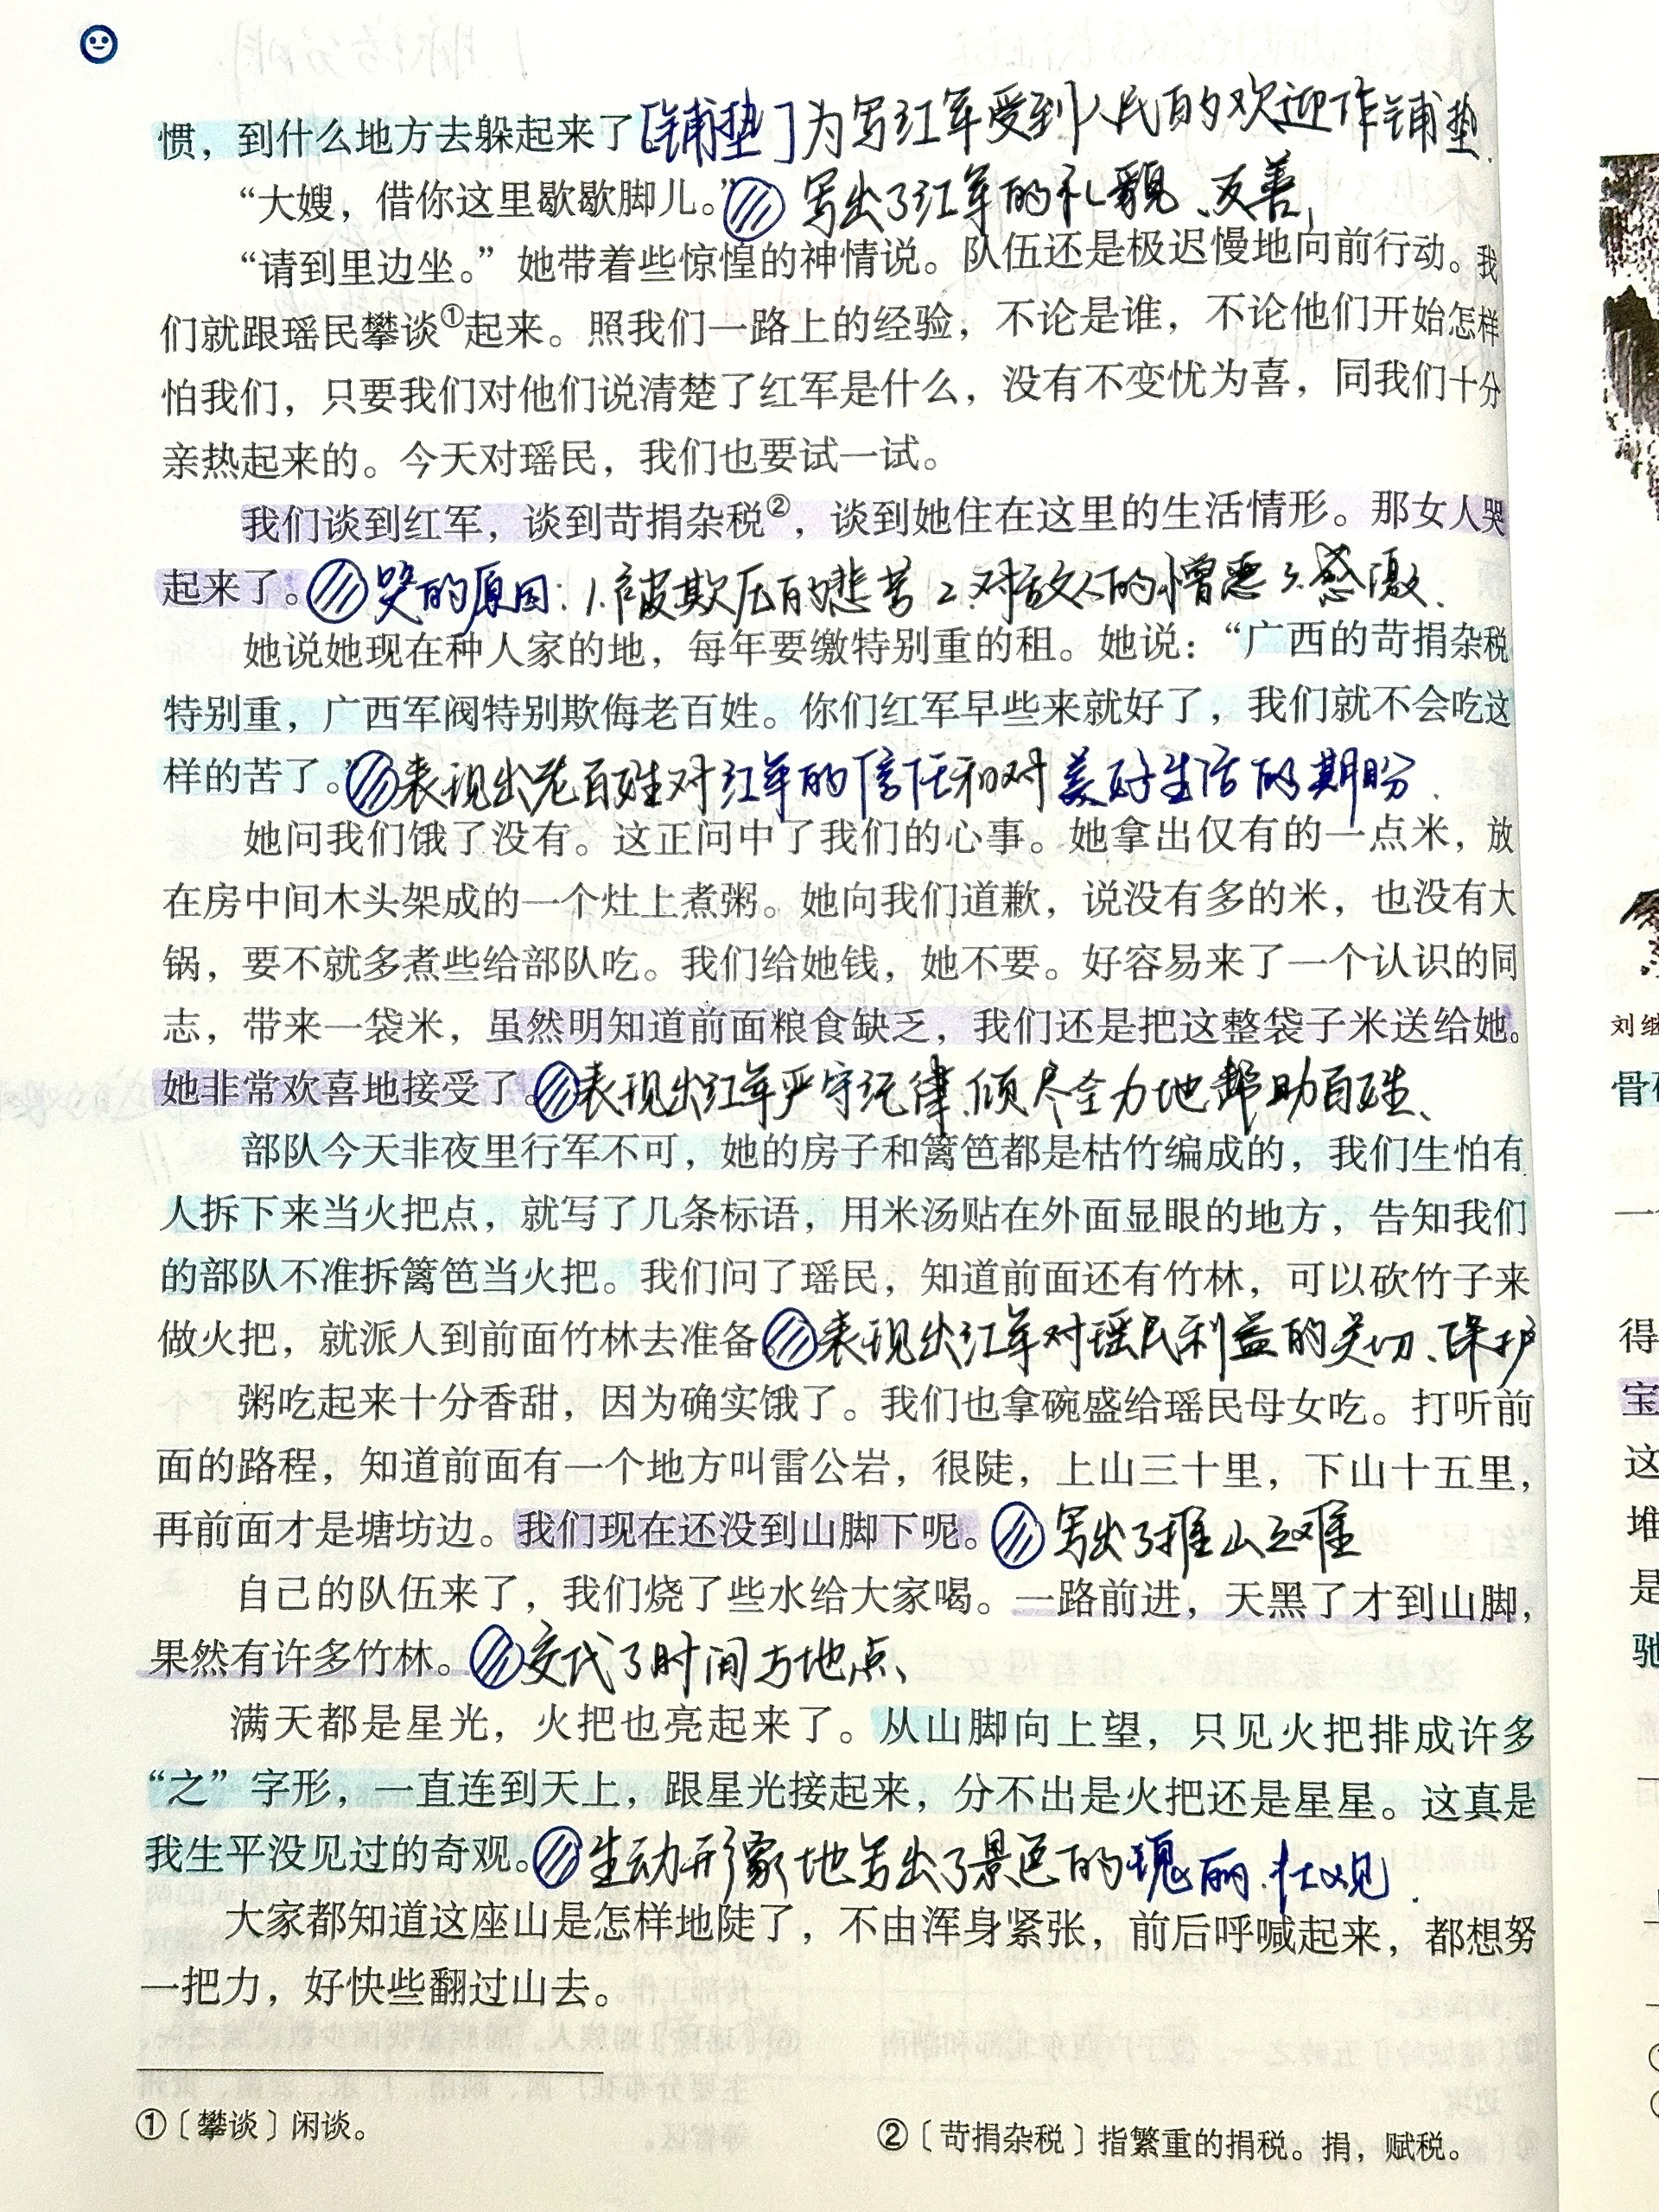 惯，到什么地方去躲起来了[铺垫]为写红军受到人民的欢迎作铺垫.
“大嫂，借你这里歇歇脚儿。” 写出了红军的礼貌、友善,
“请到里边坐。”她带着些惊惶的神情说。队伍还是极迟慢地向前行动。我
们就跟瑶民攀谈①起来。照我们一路上的经验，不论是谁，不论他们开始怎样
怕我们，只要我们对他们说清楚了红军是什么，没有不变忧为喜，同我们十分
亲热起来的。今天对瑶民，我们也要试一试。
我们谈到红军，谈到苛捐杂税②，谈到她住在这里的生活情形。那女人哭
起来了。哭的原因: 1.被欺压的悲苦 2.对敌人的憎恶 3.感激.
她说她现在种人家的地，每年要缴特别重的租。她说：“广西的苛捐杂税
特别重，广西军阀特别欺侮老百姓。你们红军早些来就好了，我们就不会吃这
样的苦了。”表现出老百姓对红军的信任和对美好生活的期盼.
她问我们饿了没有。这正问中了我们的心事。她拿出仅有的一点米，放
在房中间木头架成的一个灶上煮粥。她向我们道歉，说没有多的米，也没有大
锅，要不就多煮些给部队吃。我们给她钱，她不要。好容易来了一个认识的同
志，带来一袋米，虽然明知道前面粮食缺乏，我们还是把这整袋子米送给她。
她非常欢喜地接受了。表现出红军严守纪律、倾尽全力地帮助百姓、
部队今天非夜里行军不可，她的房子和篱笆都是枯竹编成的，我们生怕有
人拆下来当火把点，就写了几条标语，用米汤贴在外面显眼的地方，告知我们
的部队不准拆篱笆当火把。我们问了瑶民，知道前面还有竹林，可以砍竹子来
做火把，就派人到前面竹林去准备。表现出红军对瑶民利益的关切、保护
粥吃起来十分香甜，因为确实饿了。我们也拿碗盛给瑶民母女吃。打听前
面的路程，知道前面有一个地方叫雷公岩，很陡，上山三十里，下山十五里，
再前面才是塘坊边。我们现在还没到山脚下呢。 写出了推山之难
自己的队伍来了，我们烧了些水给大家喝。一路前进，天黑了才到山脚，
果然有许多竹林。交代了时间与地点、
满天都是星光，火把也亮起来了。从山脚向上望，只见火把排成许多
“之”字形，一直连到天上，跟星光接起来，分不出是火把还是星星。这真是
我生平没见过的奇观。生动形象地写出了景色的瑰丽.壮观.
大家都知道这座山是怎样地陡了，不由浑身紧张，前后呼喊起来，都想努
一把力，好快些翻过山去。
①〔攀谈〕闲谈。
②〔苛捐杂税〕指繁重的捐税。捐，赋税。
刘继
骨
一
得
宝
这
堆
是
驰